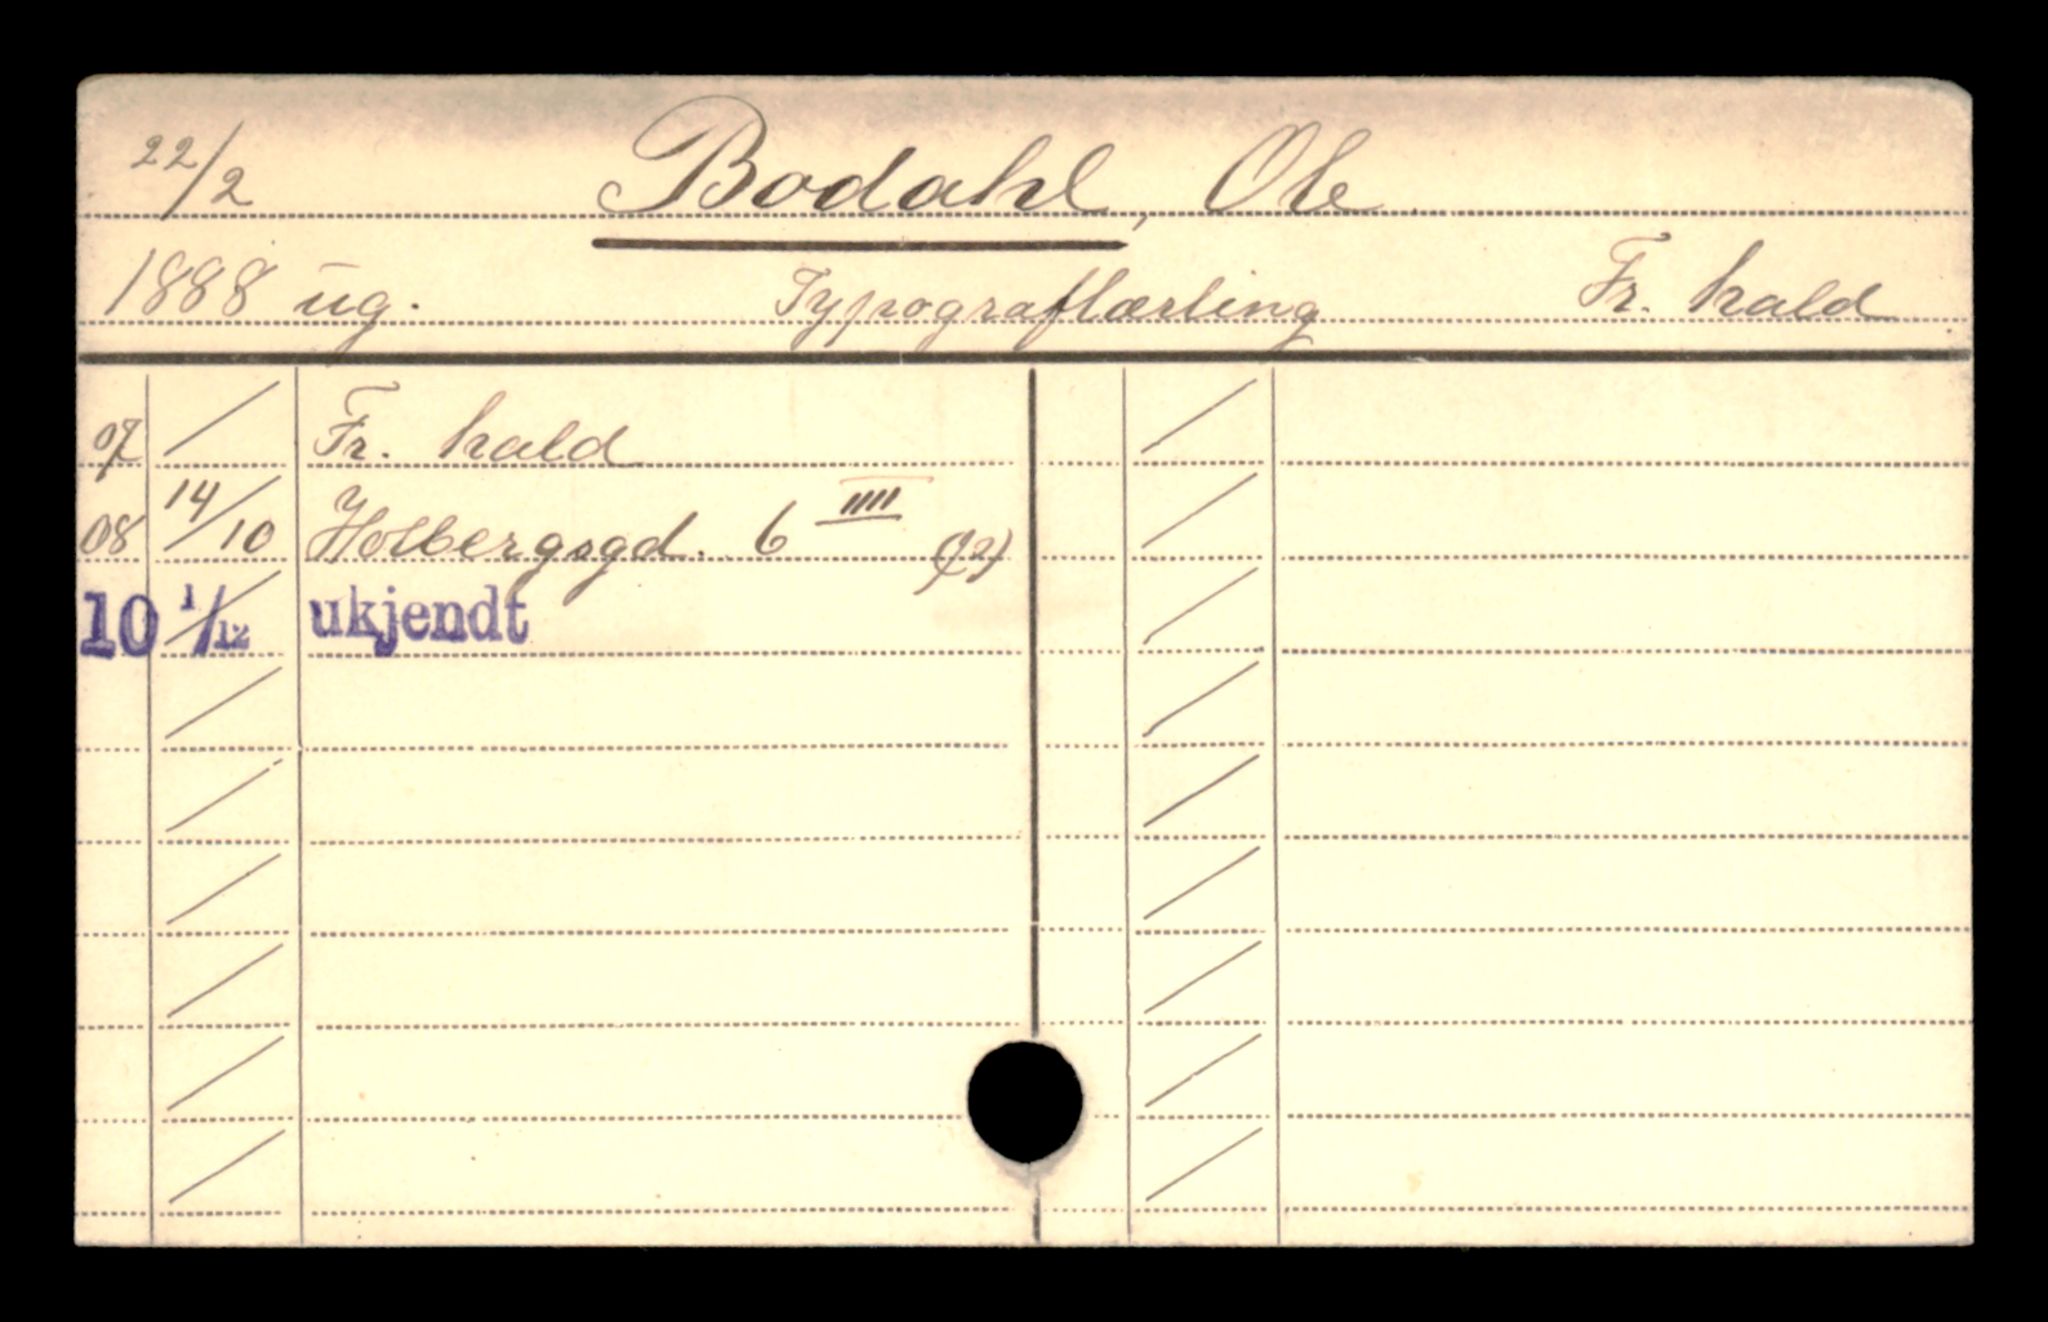 22/2 Bodahl, Ole
1888 ug. Typograflærling Fr. hald
07 / Fr. hald
08 14/10 Holbergsgd. 6 IIII (12)
10 1/12 ukjendt